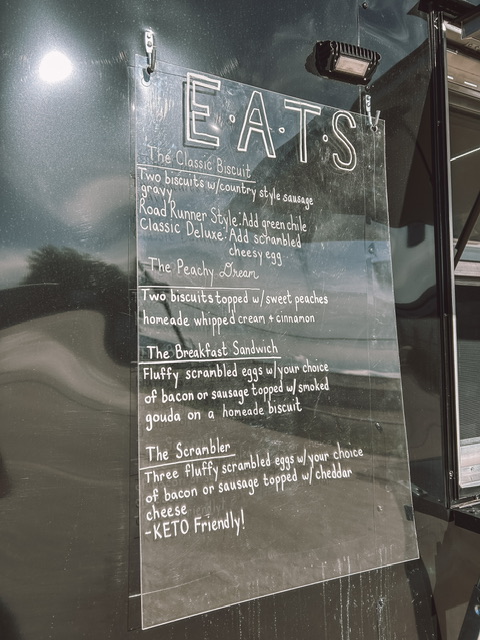 E·A·T·S
The Classic Biscuit
Two biscuits w/country style sausage
gravy
Road Runner Style: Add green chile
Classic Deluxe: Add scrambled
cheesy egg
The Peachy Dream
Two biscuits topped w/ sweet peaches
homeade whipped cream + cinnamon
The Breakfast Sandwich
Fluffy scrambled eggs w/your choice
of bacon or sausage topped w/ smoked
gouda on a homeade biscuit
The Scrambler
Three fluffy scrambled eggs w/your choice
of bacon or sausage topped w/ cheddar
cheese
-KETO Friendly!